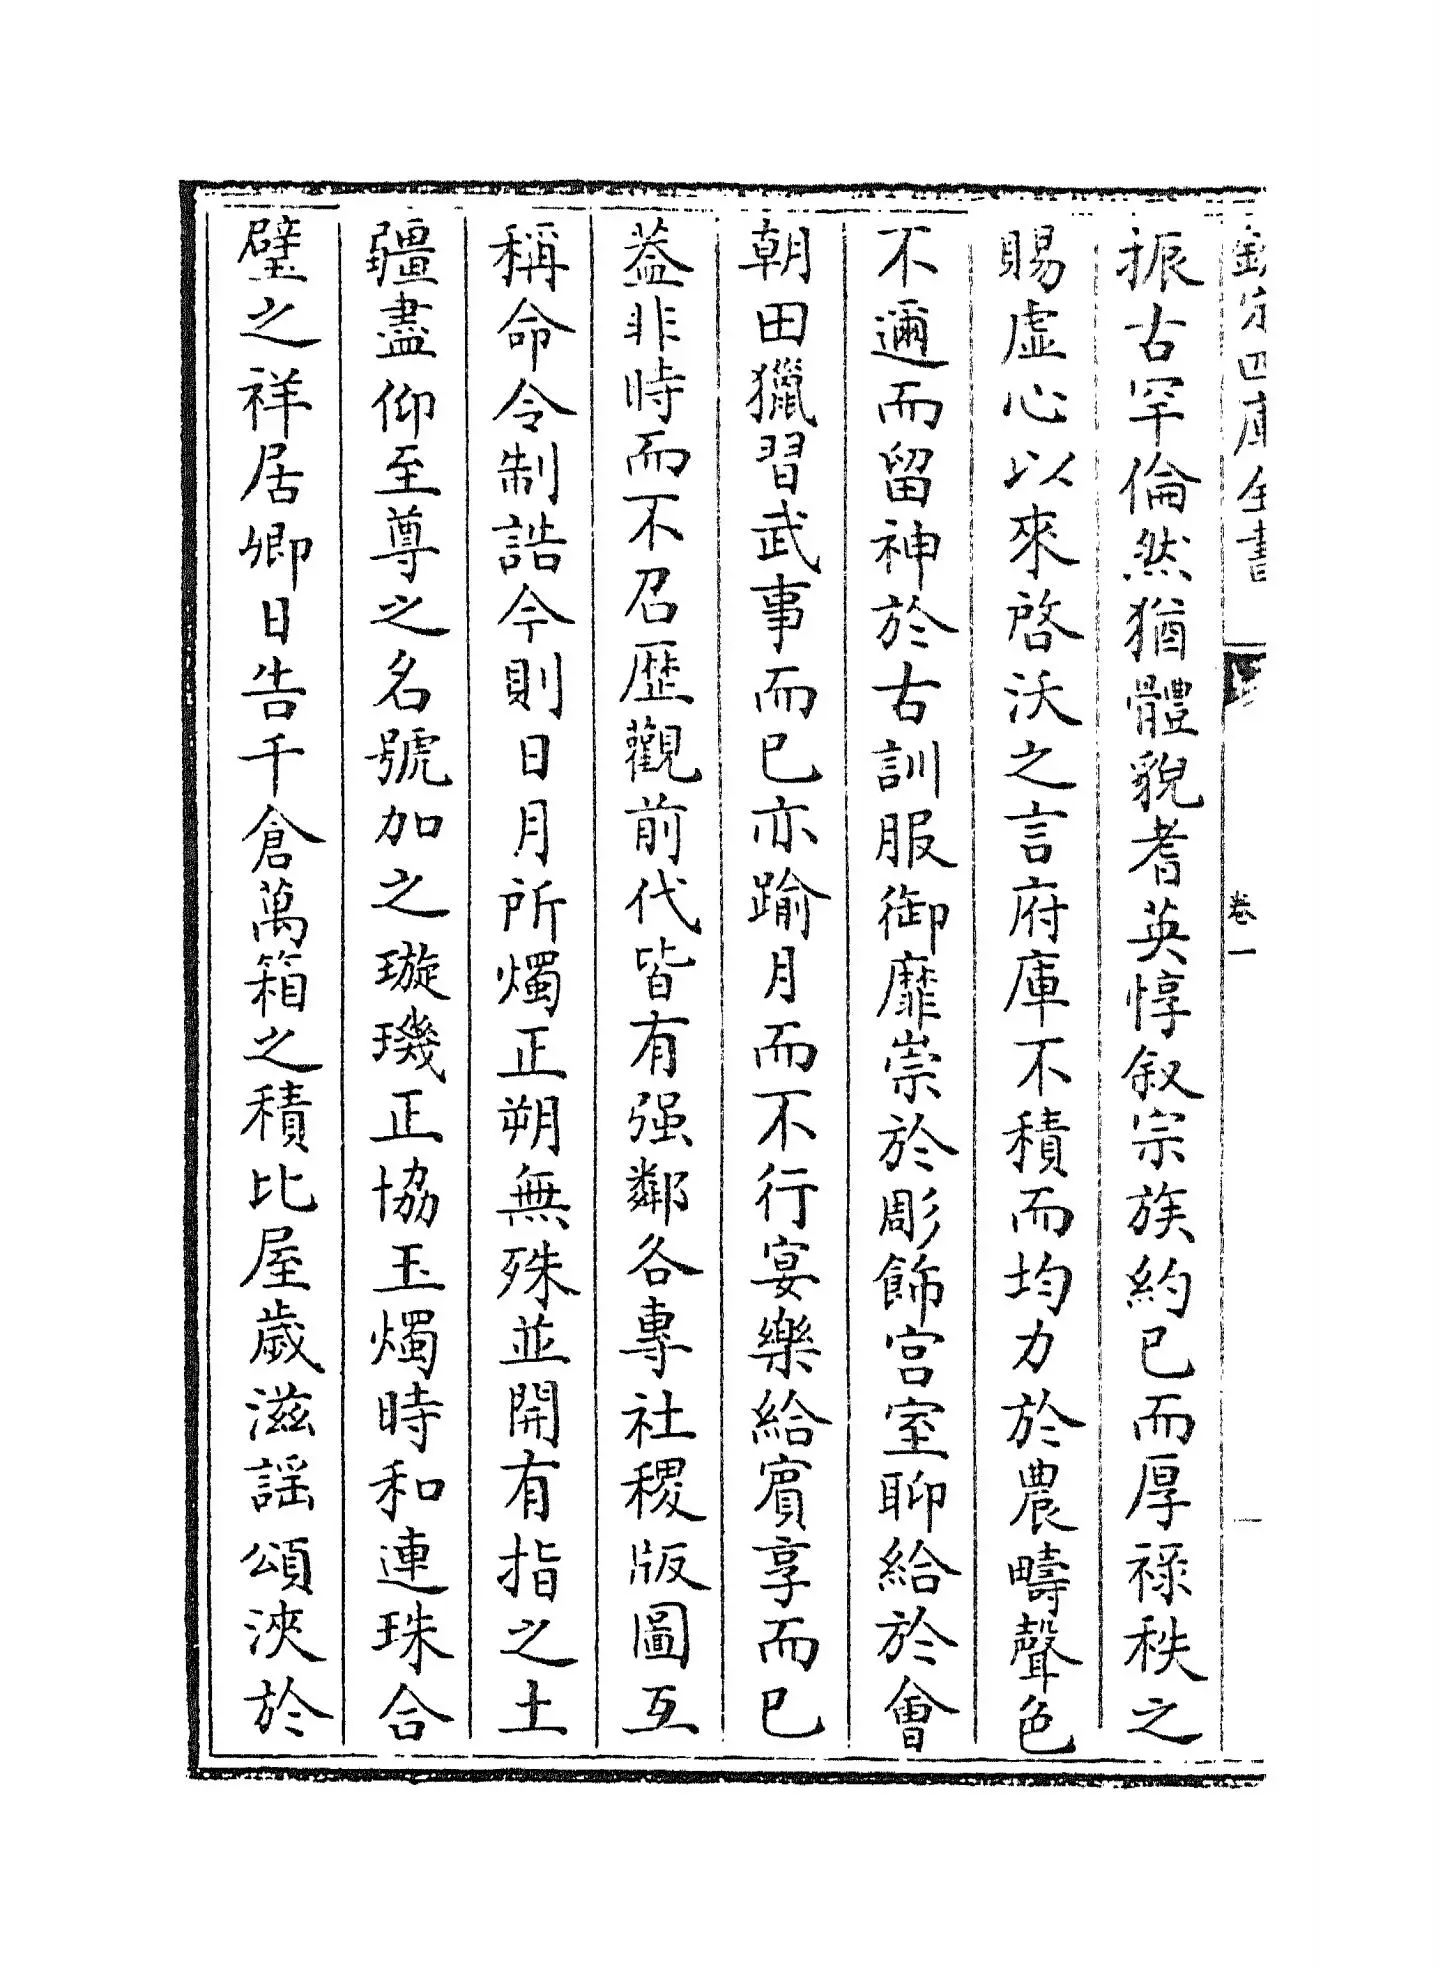 欽定四庫全書
卷一
振古罕倫然猶體貎耆英惇叙宗族約已而厚禄秩之
賜虚心以來啓沃之言府庫不積而均力於農疇聲色
不邇而留神於古訓服御靡崇於彫飾宫室聊給於會
朝田獵習武事而已亦踰月而不行宴樂給賔享而已
葢非時而不召歴觀前代皆有强鄰各專社稷版圖互
稱命令制誥今則日月所燭正朔無殊並開有指之土
疆盡仰至尊之名號加之璇璣正協玉燭時和連珠合
璧之祥居卿日告千倉萬箱之積比屋歲滋謡頌浹於